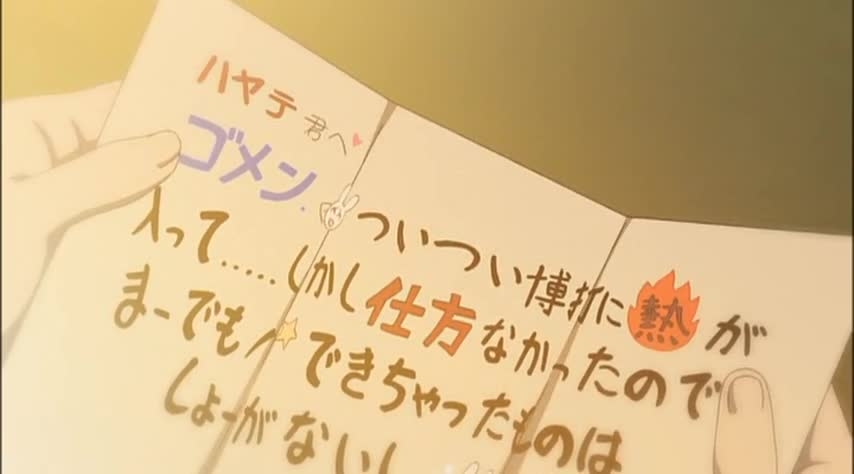 ハヤテ君へ♥
ゴメン.
ついつい博打に熱が
入って.....しかし仕方なかったので
まーでも できちゃったものは
しょーがないし